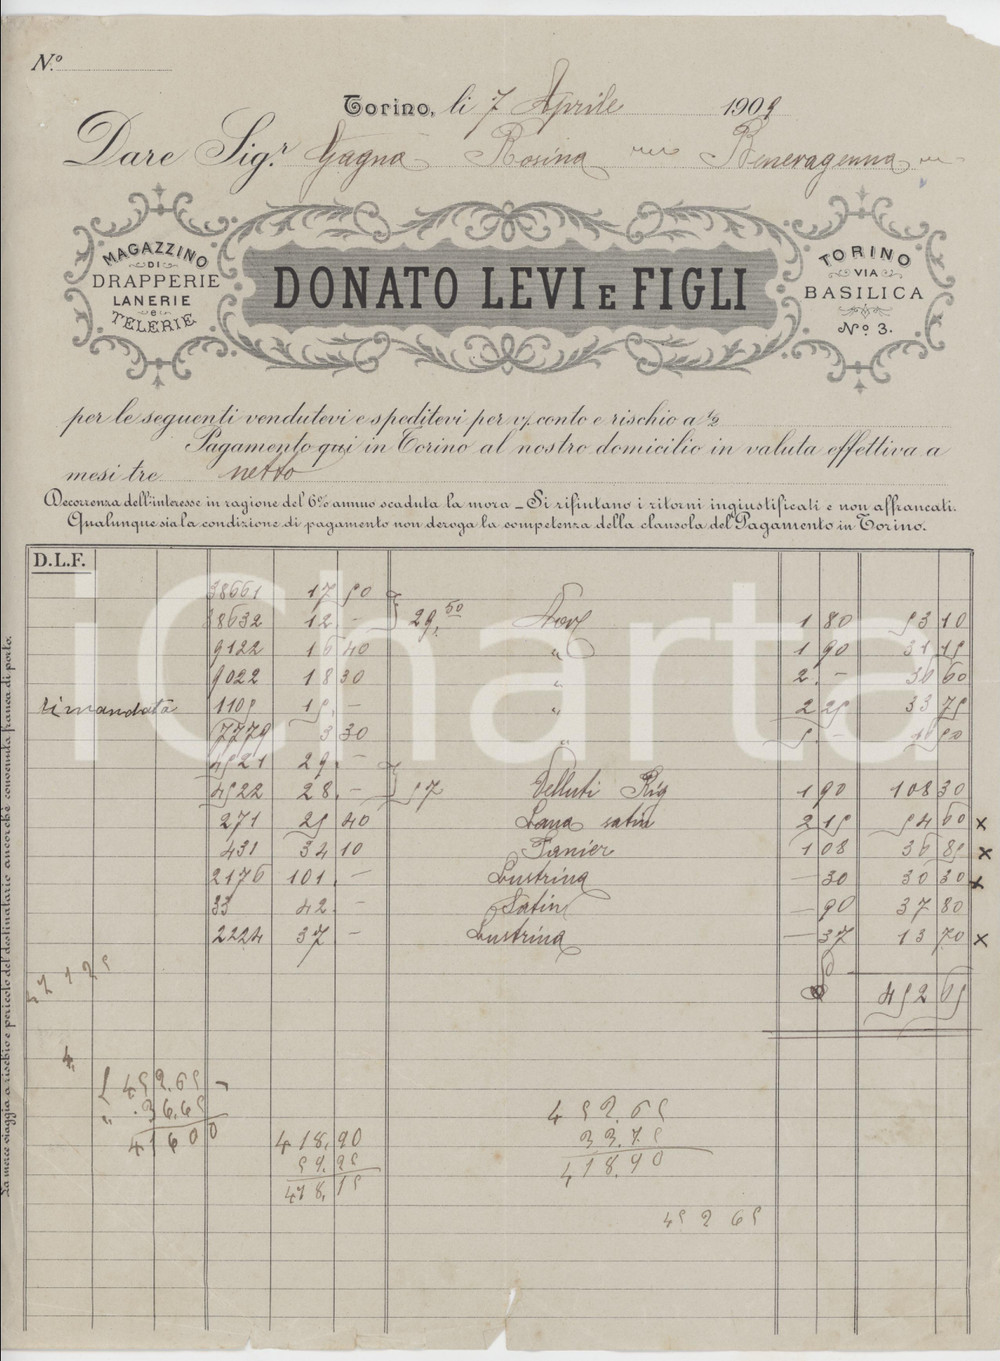 N.º
Torino, li 7 Aprile 1909
Dare Sig.r Gagna Rosina Benevagenna
MAGAZZINO
DI
DRAPPERIE
LANERIE
e
TELERIE
DONATO LEVI E FIGLI
TORINO
VIA
BASILICA
Nº 3.
per le seguenti vendutevi e speditevi per v/. conto e rischio a 1/2
Pagamento qui in Torino al nostro domicilio in valuta effettiva a
mesi tre netto
Decorrenza dell'interesse in ragione del 6% annuo scaduta la mora _ Si rifiutano i ritorni ingiustificati e non affrancati.
Qualunque sia la condizione di pagamento non deroga la competenza della clausola del Pagamento in Torino.
D.L.F.
38661 17 50
38632 12. - 29,50 1 80 53 10
9122 16 40 " 1 90 31 15
9022 18 30 " 2. - 36 60
rimandata 1105 15. - " 2 25 33 75
7779 3 30 " 5. - 16 50
4521 29. -
4522 28. - 57 Velluti Rig 1 90 108 30
271 25 40 Lana satin 2 15 54 60 x
431 34 10 Panier 1 08 36 85 x
2176 101. - Lustrina - 30 30 30 x
33 42. - Satin - 90 37 80
2224 37 - Lustrina - 37 13 70 x
452 65
452.65
36.65
416 00
418,90
59.25
478,15
452.65
33.75
418.90
452 65
La merce viaggia a rischio e pericolo del destinatario ancorchè convenuta franca di porto.
iCharta